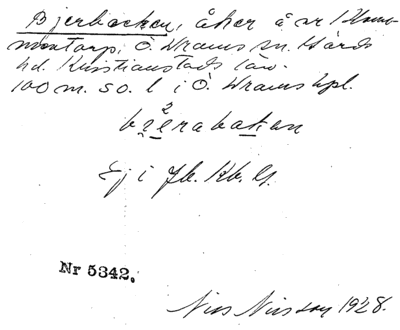 Bjerbacken, åker å nr 1 Hom-
mentorp, Ö. Vrams sn. Gärds
hd. Kristianstads län.
100 m. SO. l i Ö. Vrams kpl.
bʒ²ɛrabakan
Ej i Jb. Kb. G.
Nr 5342.
Nils Nilsson 1928.